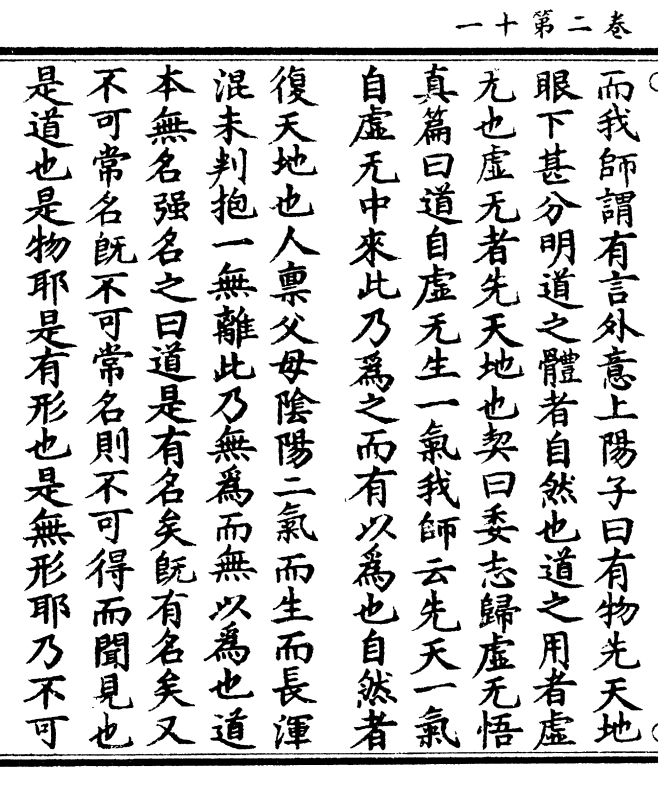 卷二第十一
而我師謂有言外意上陽子曰有物先天地
眼下甚分明道之體者自然也道之用者虛
无也虛无者先天地也契曰委志歸虛无悟
真篇曰道自虛无生一氣我師云先天一氣
自虛无中來此乃爲之而有以爲也自然者
復天地也人禀父母陰陽二氣而生而長渾
混未判抱一無離此乃無爲而無以爲也道
本無名强名之曰道是有名矣旣有名矣又
不可常名旣不可常名則不可得而聞見也
是道也是物耶是有形也是無形耶乃不可